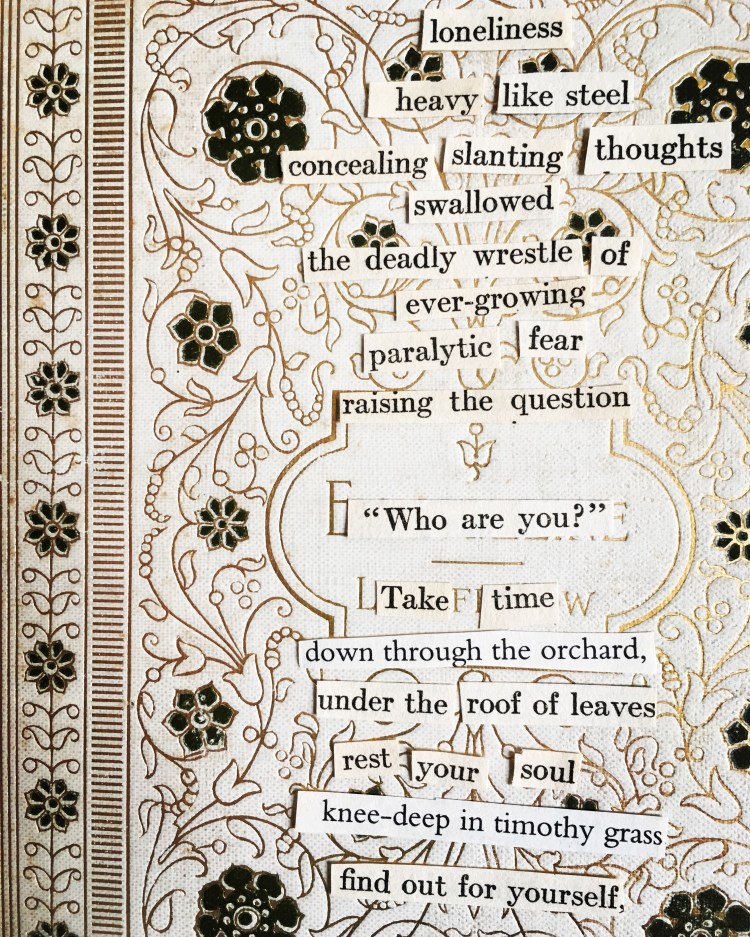 loneliness
heavy like steel
concealing slanting thoughts
swallowed
the deadly wrestle of
ever-growing
paralytic fear
raising the question
“Who are you?”
Take time
down through the orchard,
under the roof of leaves
rest your soul
knee-deep in timothy grass
find out for yourself,